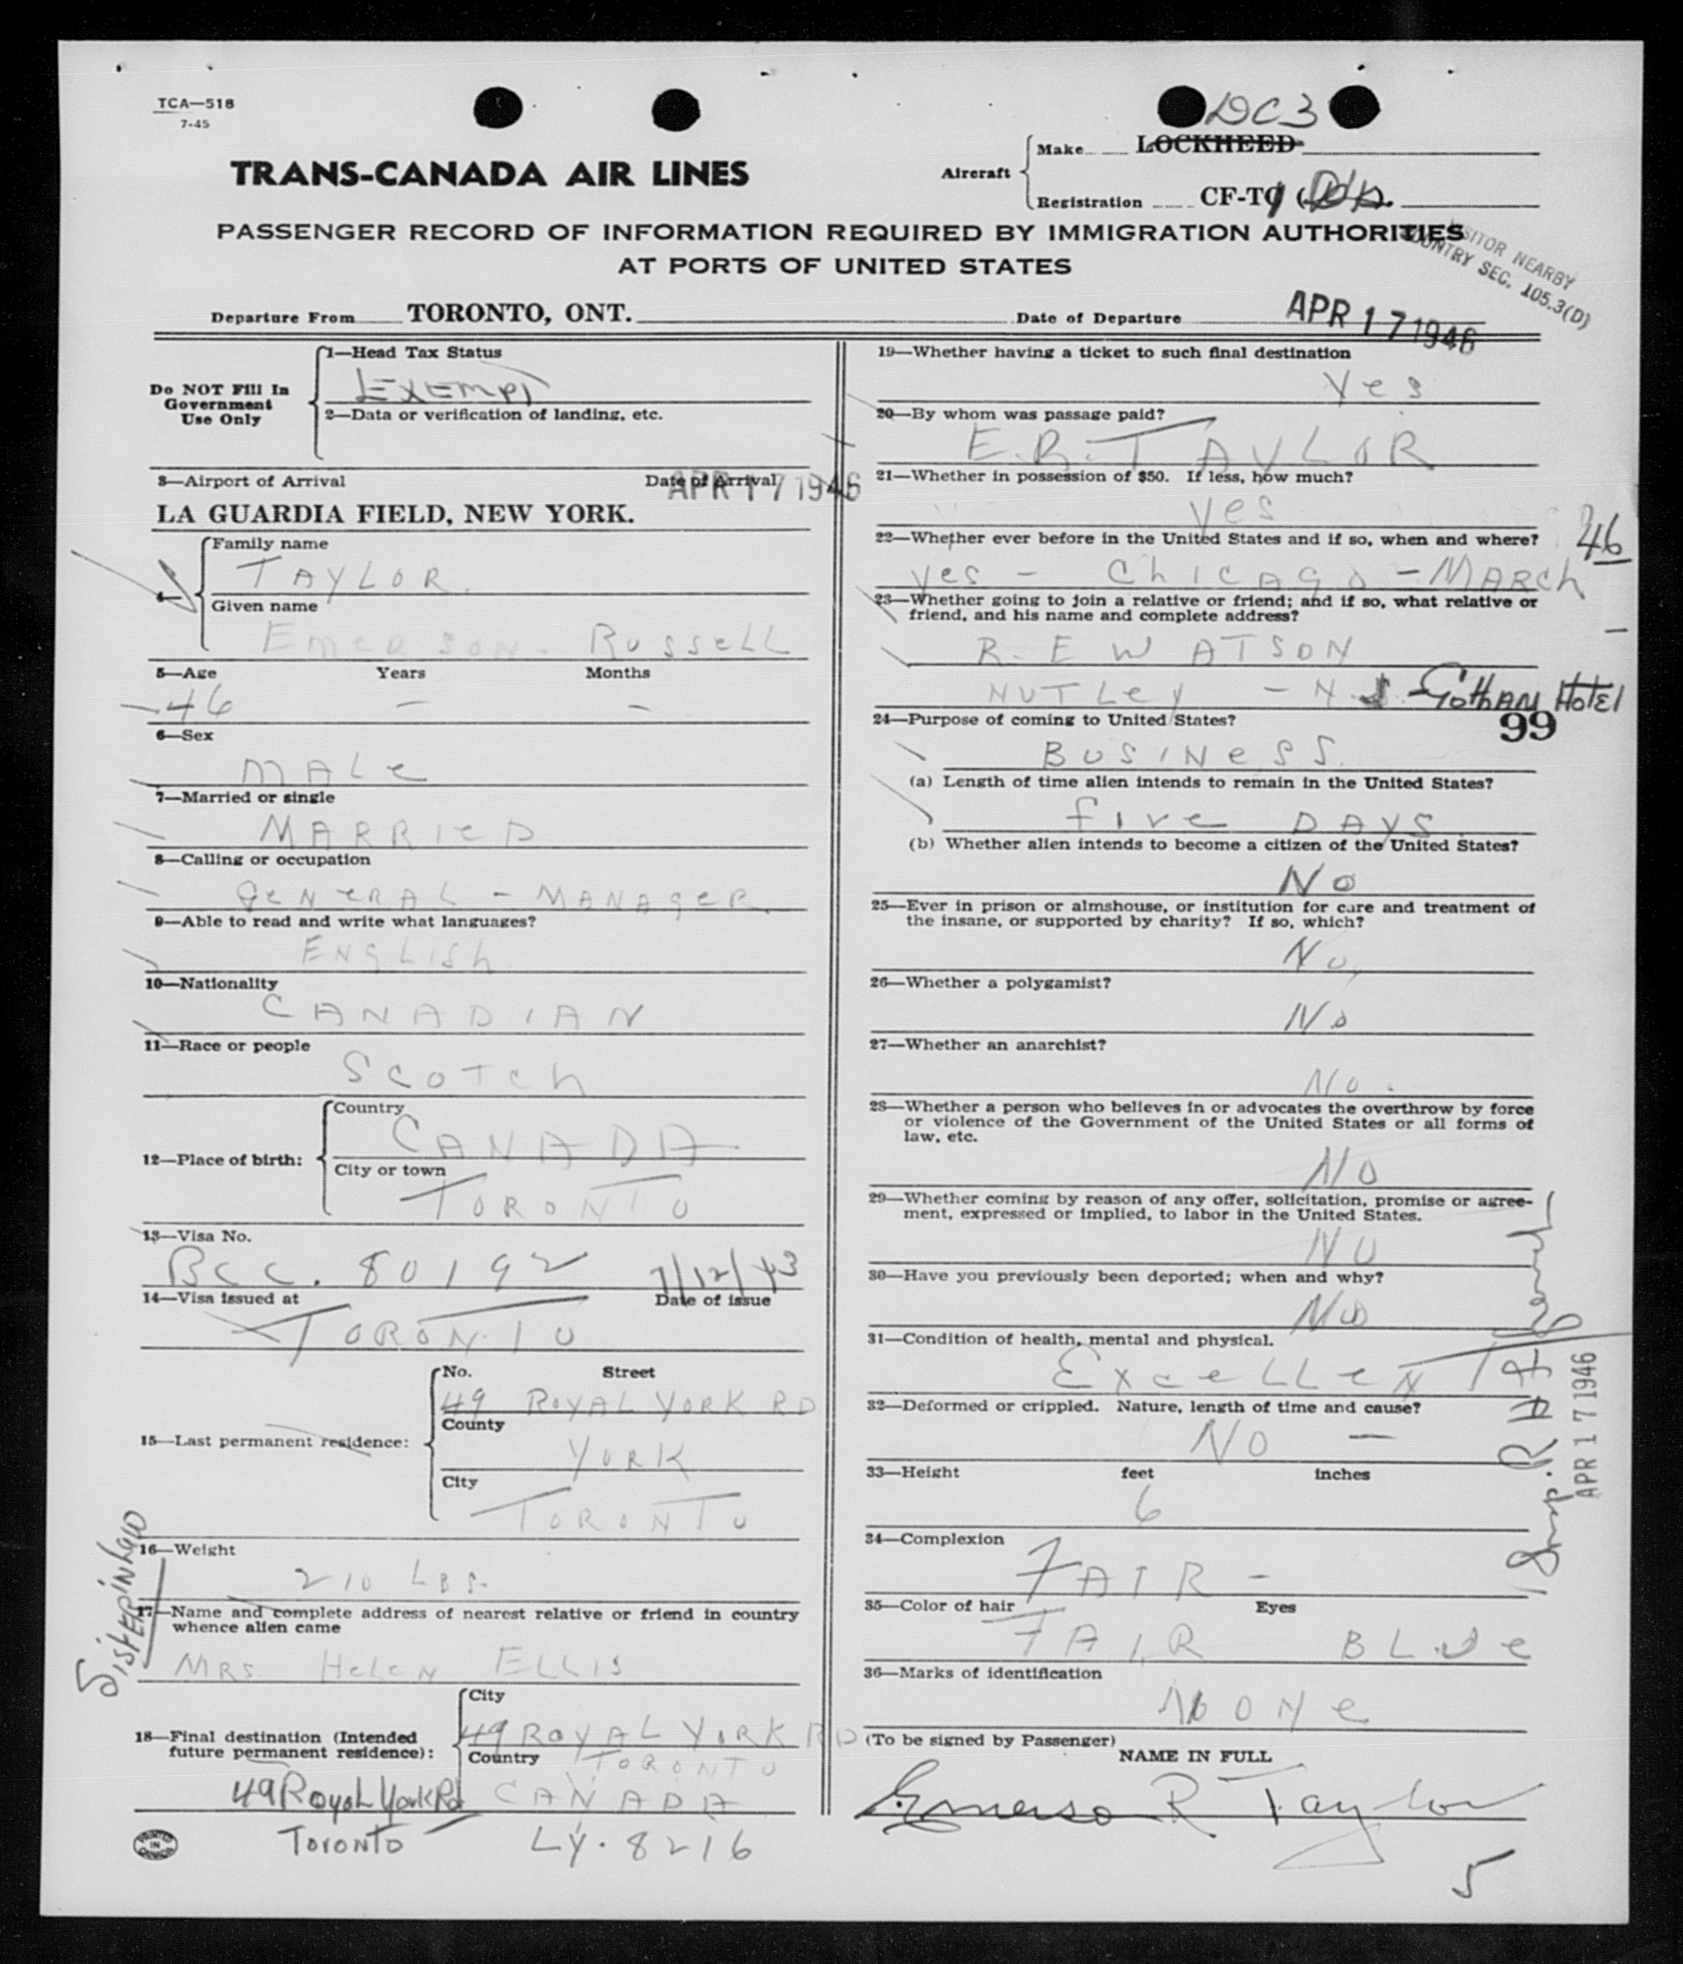 TCA—518
7-45
DC3
TRANS-CANADA AIR LINES
Aircraft
Make LOCKHEED
Registration CF-T
PASSENGER RECORD OF INFORMATION REQUIRED BY IMMIGRATION AUTHORITIES
AT PORTS OF UNITED STATES
VISITOR NEARBY
COUNTRY SEC. 105.3(D)
Departure From TORONTO, ONT. Date of Departure APR 17 1946
Do NOT Fill In
Government
Use Only
1—Head Tax Status
Exempt
2—Data or verification of landing, etc.
3—Airport of Arrival Date of Arrival APR 17 1946
LA GUARDIA FIELD, NEW YORK.
4—
Family name
TAYLOR.
Given name
EMERSON. RUSSELL
5—Age Years Months
46 — —
6—Sex
MALe
7—Married or single
MARRIeD
8—Calling or occupation
GeNeRAL - MANAGeR.
9—Able to read and write what languages?
ENGLISh
10—Nationality
CANADIAN
11—Race or people
SCOTCh
12—Place of birth:
Country
CANADA
City or town
TORONTO
13—Visa No.
BCC. 80192 7/12/43
14—Visa issued at Date of issue
TORONTO
15—Last permanent residence:
No. Street
49 ROYAL YORK RD
County
YORK
City
TORONTO
16—Weight
210 LBS.
17—Name and complete address of nearest relative or friend in country
whence alien came
SisterinLaw
MRS HeLeN ELLIS
18—Final destination (Intended
future permanent residence):
City
49 ROYAL YORK RD
Country TORONTO
49 Royal York Rd CANADA
Toronto LY. 8216
PRINTED IN CANADA
19—Whether having a ticket to such final destination
Yes
20—By whom was passage paid?
E.R. TAYLOR
21—Whether in possession of $50. If less, how much?
yes
22—Whether ever before in the United States and if so, when and where?
yes - ChICAGO - MARCh 46
23—Whether going to join a relative or friend; and if so, what relative or
friend, and his name and complete address?
R. E WATSON
NUTLey - N.J. - GothAM HotEl
99
24—Purpose of coming to United States?
BUSINeSS.
(a) Length of time alien intends to remain in the United States?
fIve DAYS.
(b) Whether alien intends to become a citizen of the United States?
No
25—Ever in prison or almshouse, or institution for care and treatment of
the insane, or supported by charity? If so, which?
No,
26—Whether a polygamist?
No
27—Whether an anarchist?
No.
28—Whether a person who believes in or advocates the overthrow by force
or violence of the Government of the United States or all forms of
law, etc.
NO
29—Whether coming by reason of any offer, solicitation, promise or agree-
ment, expressed or implied, to labor in the United States.
NO
30—Have you previously been deported; when and why?
No
31—Condition of health, mental and physical.
ExceLLeNT
32—Deformed or crippled. Nature, length of time and cause?
NO —
33—Height feet inches
6
34—Complexion
FAIR -
35—Color of hair Eyes
FAIR BLUe
36—Marks of identification
NONe
(To be signed by Passenger)
NAME IN FULL
Emerson R Taylor
5
APR 17 1946